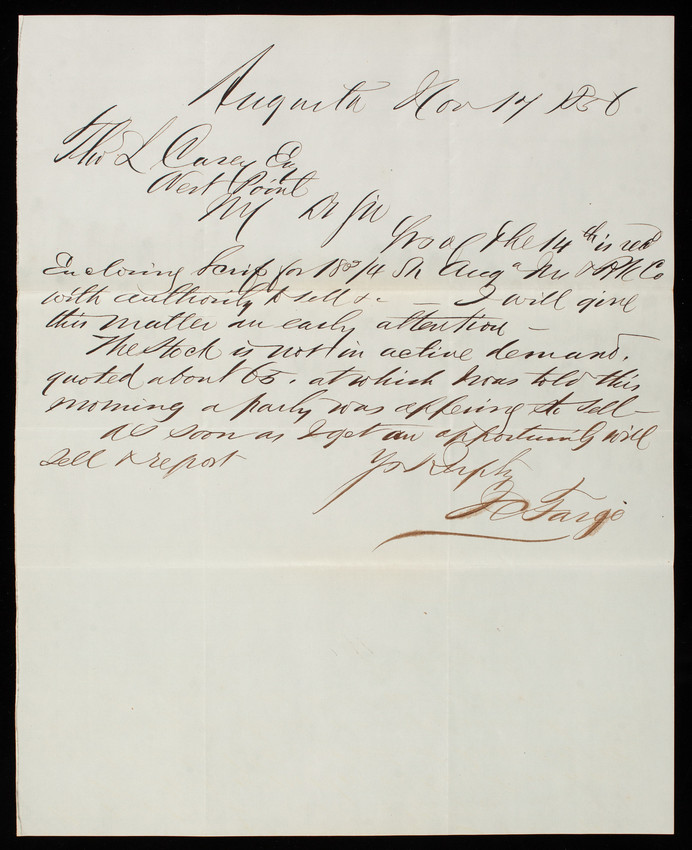 Augusta Nov 17 1856
Thos L Casey Esq
West Point
NY Dr Sir
Yrs of the 14th is recd
Enclosing Scrip for 18 3/4 Sh Auga In & Bk Co
with authority to sell &c — I will give
this matter an early attention —
The stock is not in active demand,
quoted about 65. at which I was told this
morning a party was offering to sell—
as soon as I get an opportunity will
sell & report Yr Respfy
Fargo